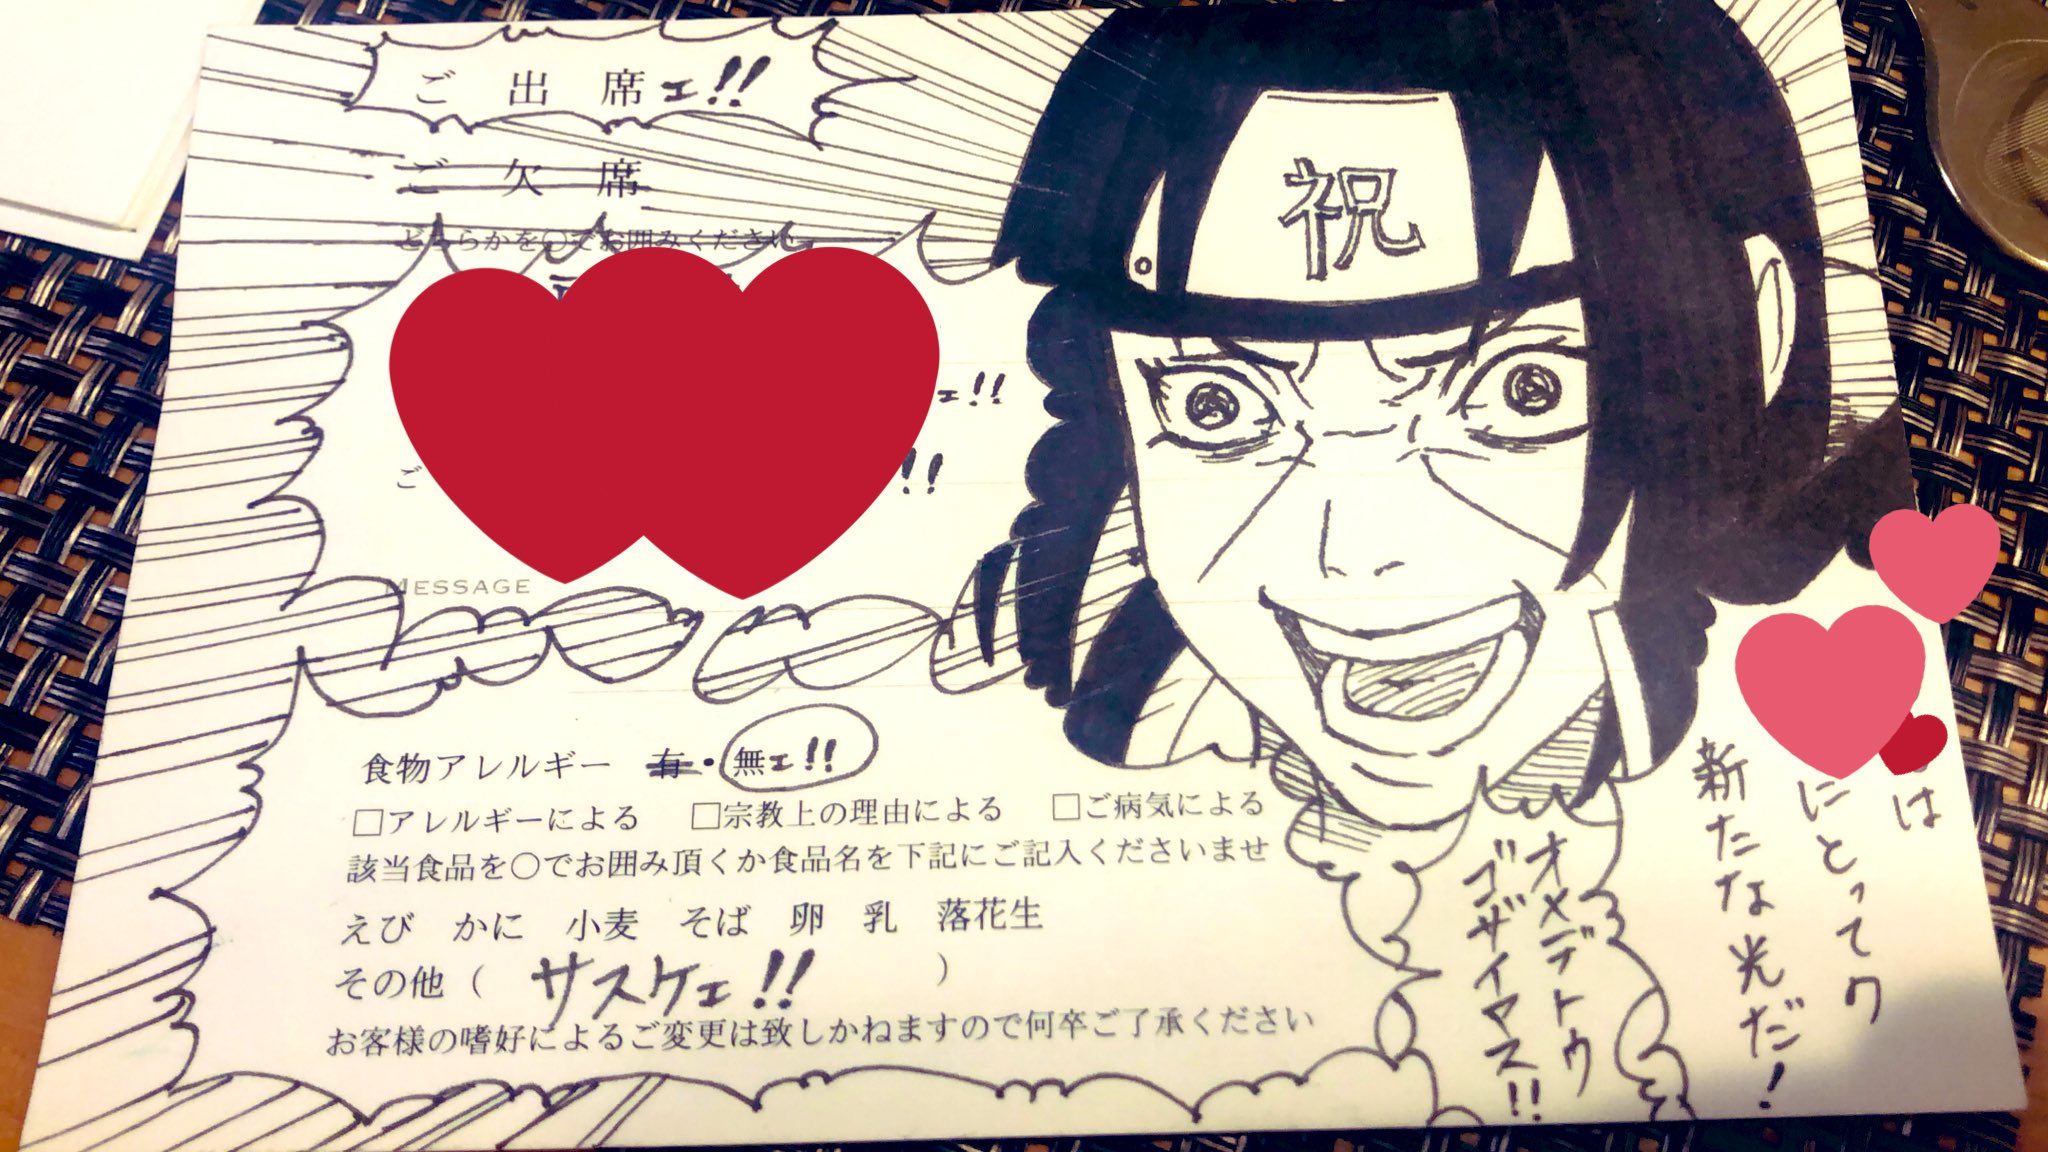 ご出席ェ!!
ご欠席
どちらかを〇でお囲みください
ェ!!
ご
!!
MESSAGE
食物アレルギー 有・無ェ!!
□アレルギーによる □宗教上の理由による □ご病気による
該当食品を〇でお囲み頂くか食品名を下記にご記入くださいませ
えび かに 小麦 そば 卵 乳 落花生
その他( サスケェ!! )
お客様の嗜好によるご変更は致しかねますので何卒ご了承ください
祝
は
にとってワ
新たな光だ!
オメデトウ
ゴザイマス!!